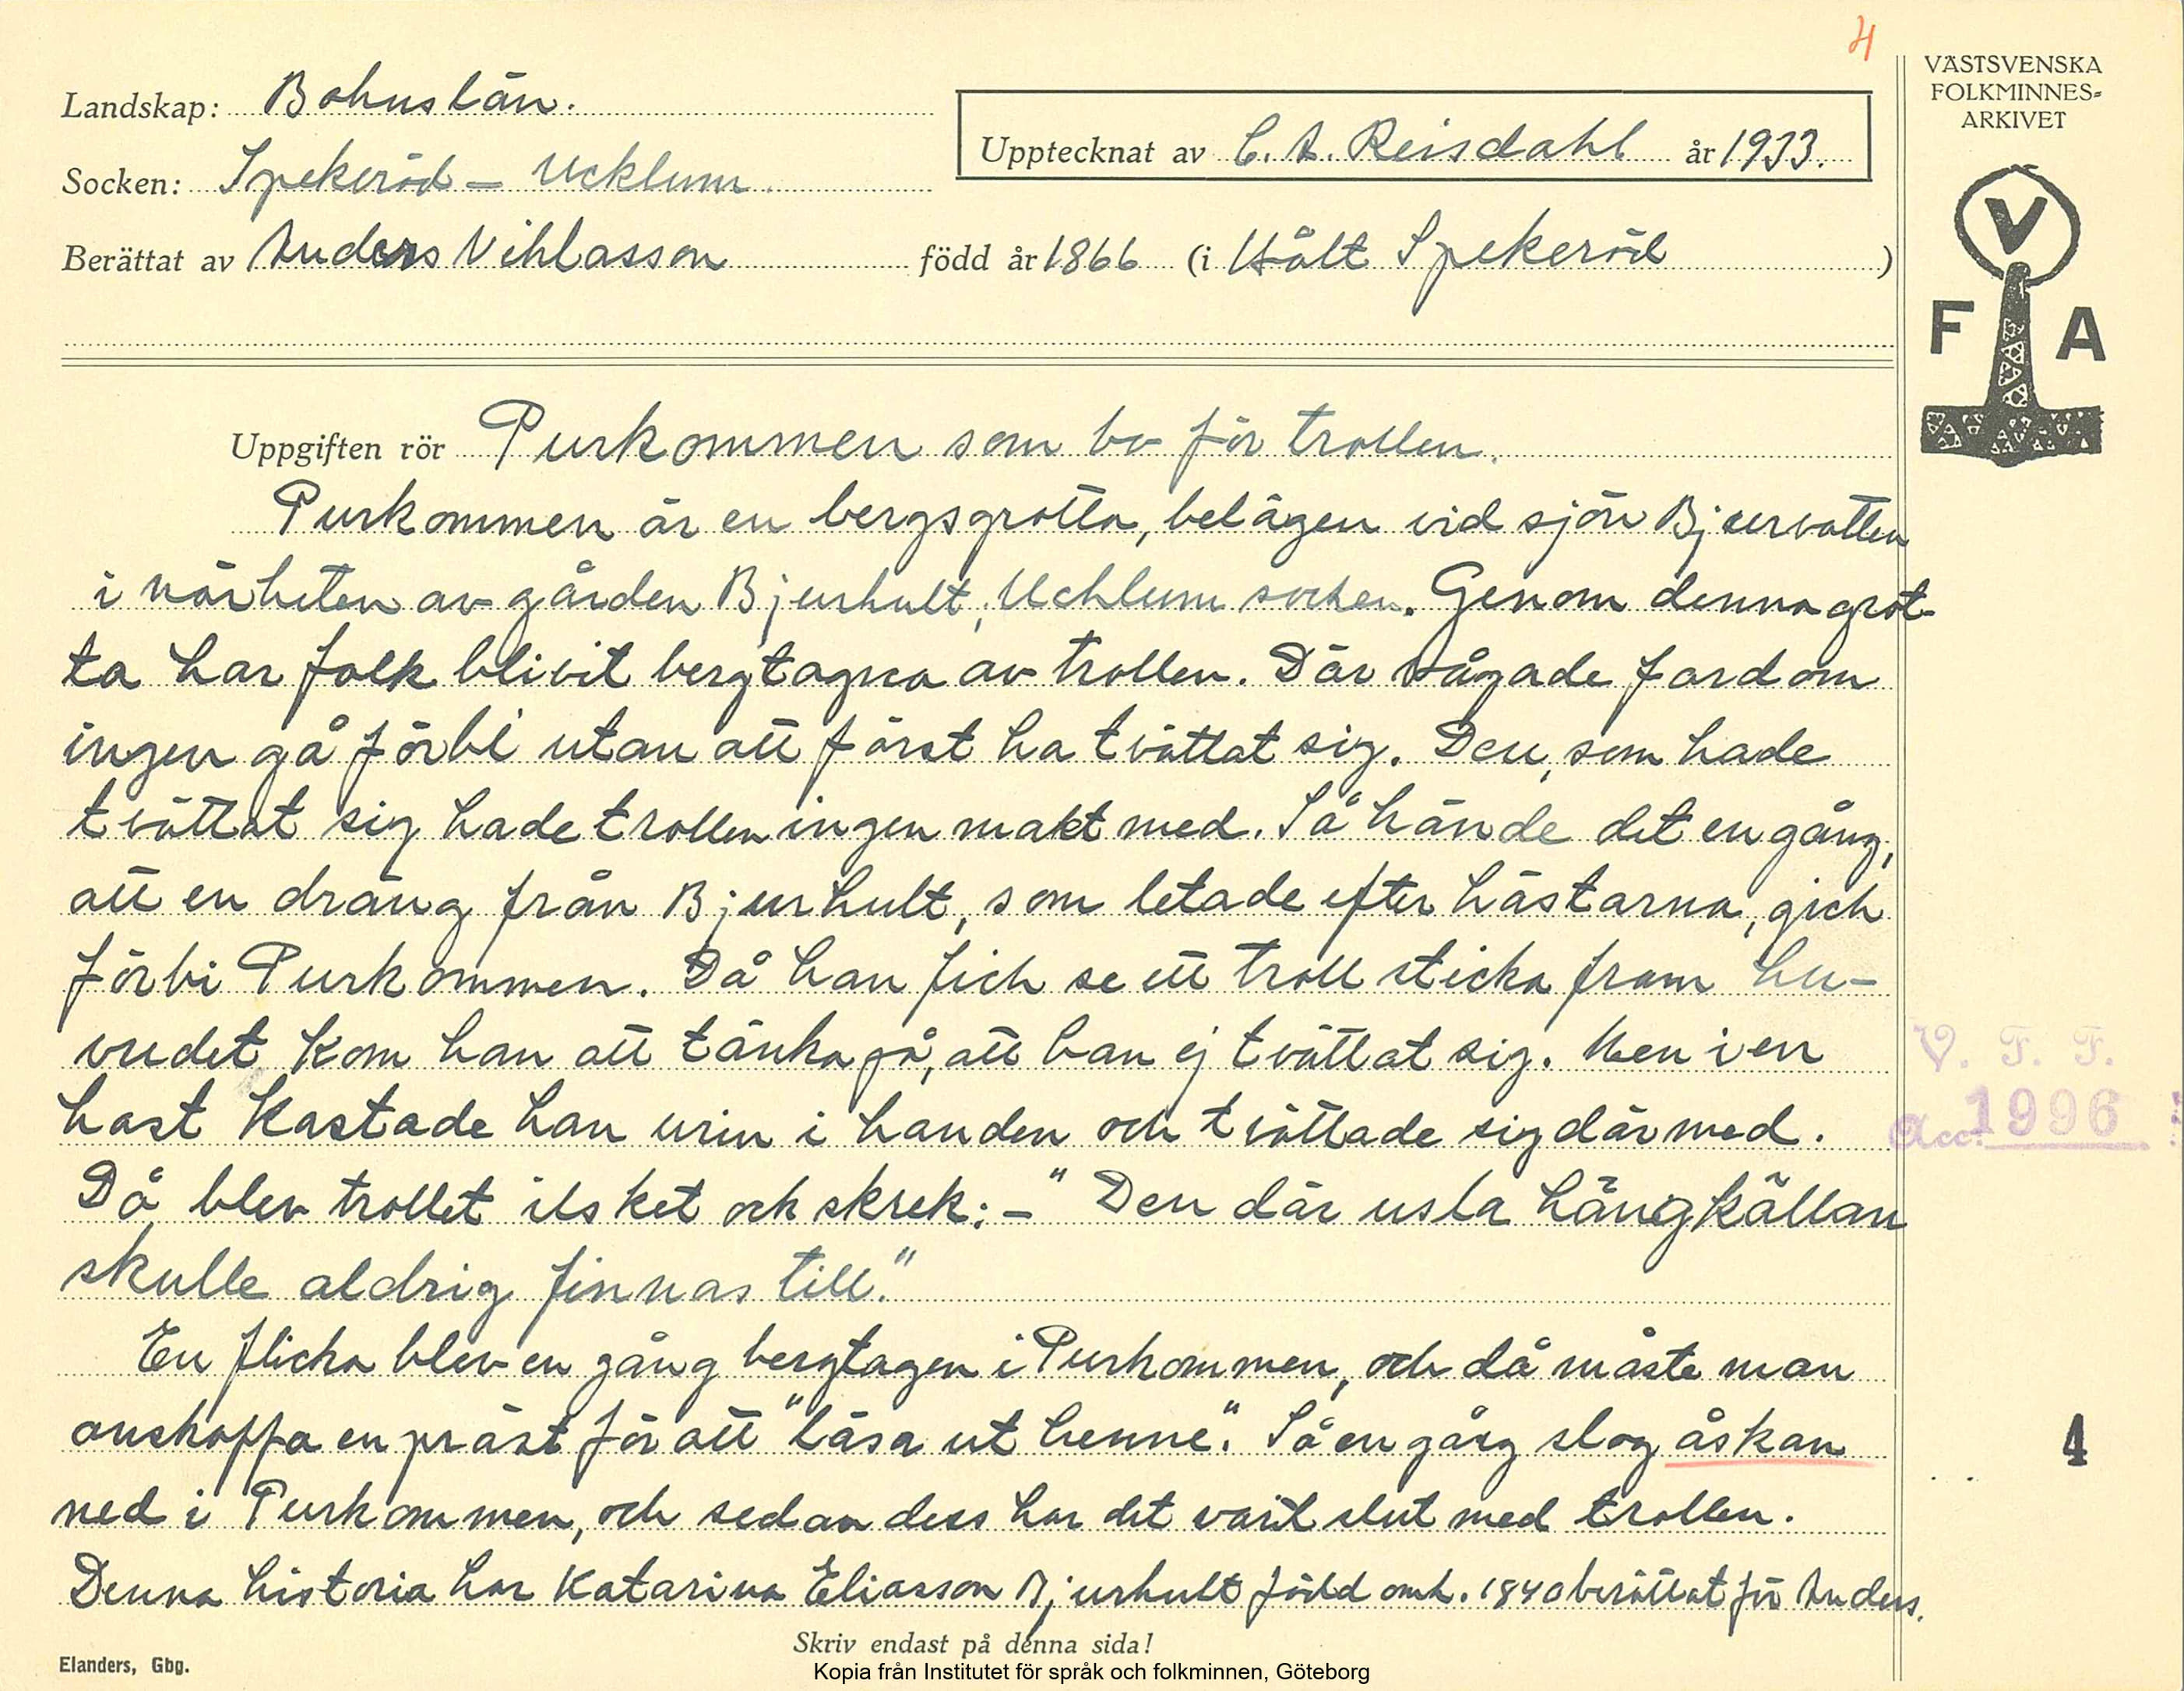 4
VÄSTSVENSKA
FOLKMINNES=
ARKIVET
Landskap: Bohuslän.
Upptecknat av C. A. Reisdahl år 1933.
Socken: Spekeröd – Ucklum
Berättat av Anders Vihlasson född år 1866 (i Hålt Spekeröd )
V
F A
Uppgiften rör Purkommen som bo för trollen.
Purkommen är en bergsgrotta, belägen vid sjön Bjurvatten
i närheten av gården Bjurhult, Ucklum socken. Genom denna grot-
ta har folk blivit bergtagna av trollen. Där vågade fordom
ingen gå förbi utan att först ha tvättat sig. Den, som hade
tvättat sig hade trollen ingen makt med. Så hände det en gång,
att en dräng från Bjurhult, som letade efter hästarna, gick
förbi Purkommen. Då han fick se ett troll sticka fram hu-
vudet kom han att tänka på, att han ej tvättat sig. Men i en
hast kastade han urin i handen och tvättade sig därmed.
Då blev trollet ilsket och skrek: – "Den där usla hängkällan
skulle aldrig finnas till."
En flicka blev en gång bergtagen i Purkommen, och då måste man
anskaffa en präst för att "läsa ut henne". Så en gång slog åskan
ned i Purkommen, och sedan dess har det varit slut med trollen.
Denna historia har Katarina Eliasson Bjurhult född omk. 1840 berättat för Anders.
V. F. F.
Acc. 1996
4
Skriv endast på denna sida!
Elanders, Gbg.
Kopia från Institutet för språk och folkminnen, Göteborg